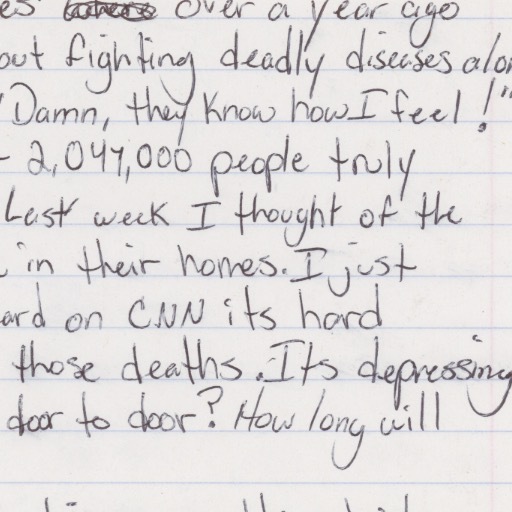 over a year ago
out fighting deadly diseases
"Damn, they know how I feel!"
2,047,000 people truly
Last week I thought of the
in their homes. I just
ard on CNN its hard
those deaths. Its depressing
door to door? How long will